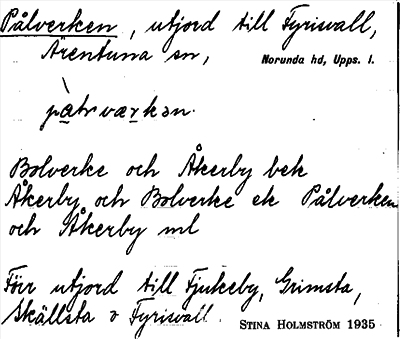 Pålverken, utjord till Fyrisvall,
Ärentuna sn, Norunda hd, Upps. l.
Bolverke och Åkerby bek
Åkerby och Bolverke ek Pålverken
och Åkerby ml
Förr utjord till Fjukeby, Grimsta,
Skällsta o Fyrisvall. STINA HOLMSTRÖM 1935